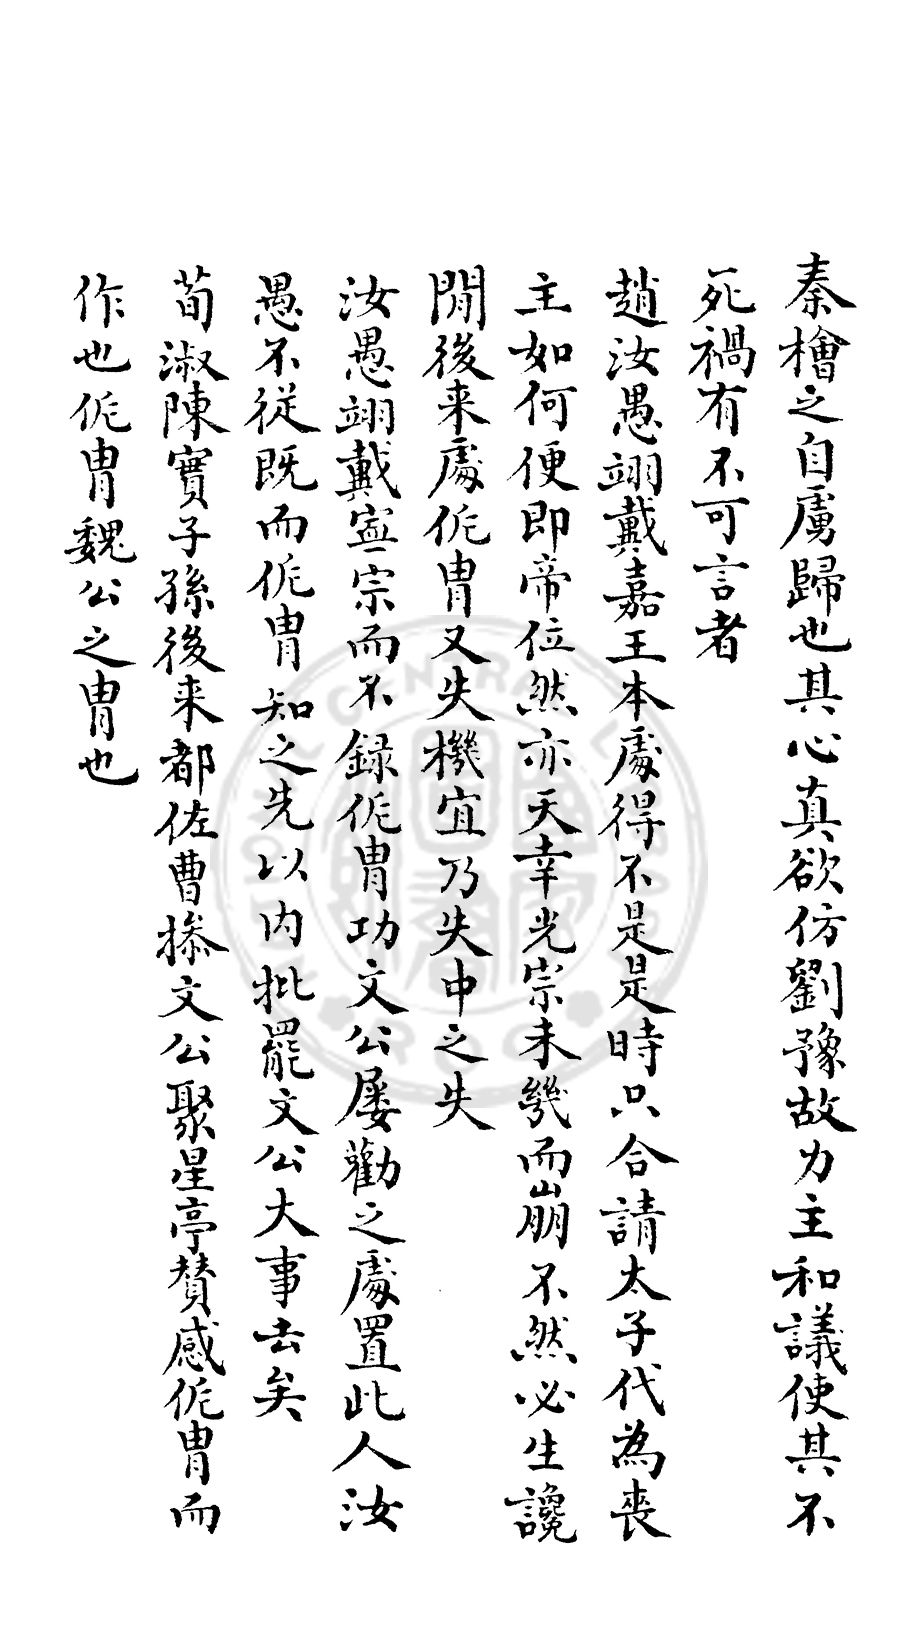 秦檜之自虜歸也其心真欲仿劉豫故力主和議使其不
死禍有不可言者
趙汝愚翊戴嘉王本處得不是是時只合請太子代為喪
主如何便即帝位然亦天幸光宗未幾而崩不然必生讒
間後来處侂冑又失機宜乃失中之失
汝愚翊戴寧宗而不録侂冑功文公屢勸之處置此人汝
愚不從既而侂冑知之先以内批罷文公大事去矣
荀淑陳實子孫後来都佐曹摻文公聚星亭贊感侂冑而
作也侂冑魏公之冑也
NATIONAL CENTRAL LIBRARY R.O.C.